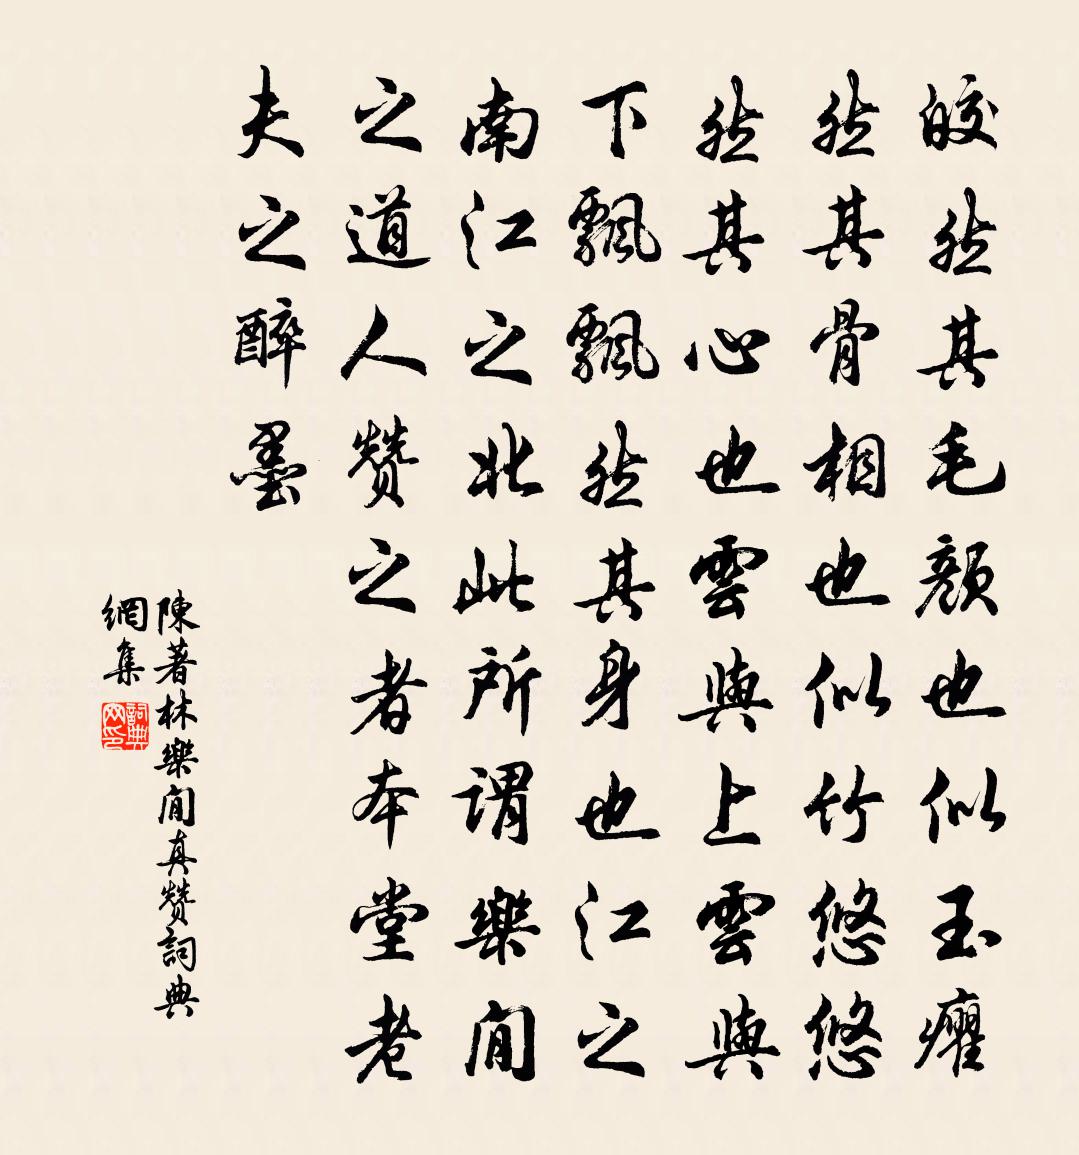 皎然其毛顏也似玉癯
然其骨相也似竹悠悠
然其心也雲與上雲與
下飄飄然其身也江之
南江之北此所謂樂閒
之道人贊之者本堂老
夫之醉墨
陳著林樂閒真贊詞典
網集
詞典
网印